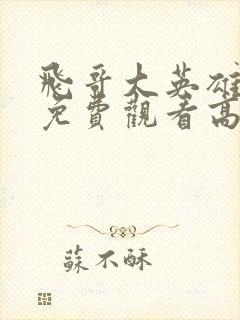 飛哥大英雄
免費觀看高
蘇不酥